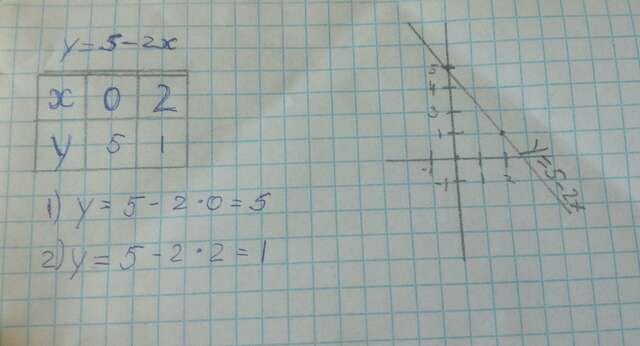 y = 5 - 2x
x 0 2
y 5 1
1) y = 5 - 2 · 0 = 5
2) y = 5 - 2 · 2 = 1
5
4
1
-1
2
y = 5 - 2x